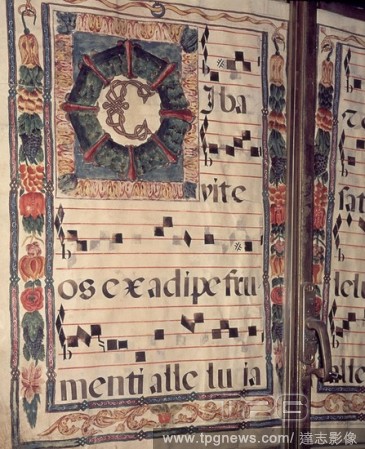 C
Iba
vit e
os ex adipe fru
menti alle lu ia
sat
lelu
alle
www.tpgnews.com/ 達志影像